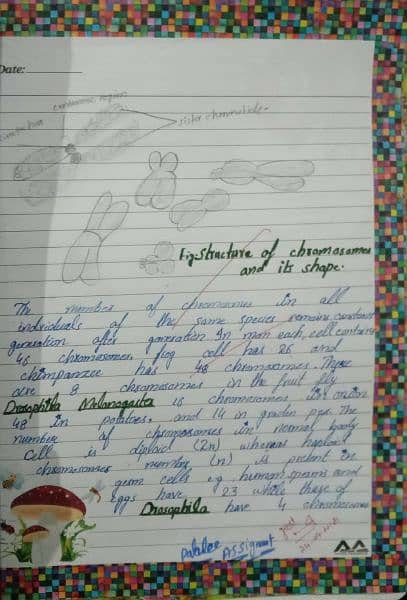 Date:
centromeric region
sister chromatids
Fig: Structure of chromosomes
and its shape.
The number of chromosomes in all
individuals of the same species remains constant
generation after generation. In man each cell contains
46 chromosomes, frog cell has 26 and
chimpanzee has 48 chromosomes. There
are 8 chromosomes in the fruit fly
Drosophila Melanogaster 16 chromosomes in onion
48 in potatoes, and 14 in garden pea. The
number of chromosomes in normal body
Cell is diploid (2n) whereas haploid
chromosomes number (n) is present in
germ cells e.g. human sperms and
eggs have 23 while these of
Drosophila have 4 chromosomes
Assigment